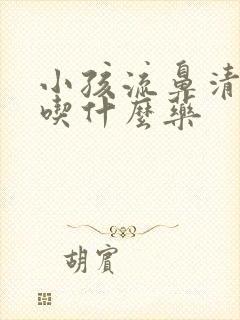 小孩流鼻清
喫什麼藥
胡賓